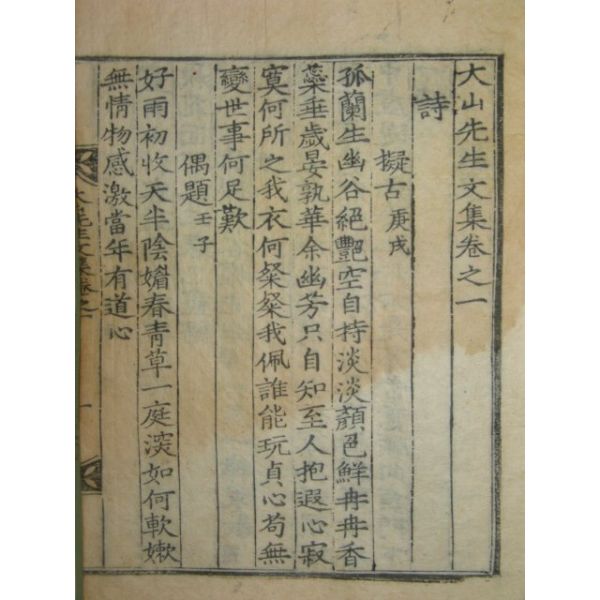 大山先生文集卷之一
詩
擬古 庚戌
孤蘭生幽谷絕艷空自持淡淡顏色鮮冉冉香
蘂垂歲晏孰華余幽芳只自知至人抱遐心寂
寞何所之我衣何粲粲我佩誰能玩貞心苟無
變世事何足歎
偶題 壬子
好雨初收天半陰媚春青草一庭深如何軟嫰
無情物感激當年有道心
大山先生文集卷之一
一